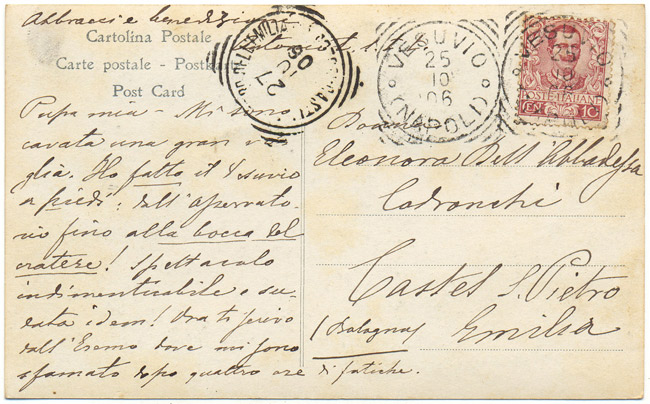 Abbracci e benedizioni
Cartolina Postale
Carte postale - Postkarte
Post Card
Pupa mia. Mi sono
cavata una gran vo
glia. Ho fatto il Vesuvio
a piedi: dall'Osservato
rio fino alla bocca del
cratere! Spettacolo
indimenticabile e su-
data idem! Ora ti scrivo
dall'Eremo dove mi sono
sfamato dopo quattro ore di fatiche.
VESUVIO
25
10
06
(NAPOLI)
27
06
POSTE ITALIANE
CENT. 10
Donna
Eleonora Dell'Abbadessa
Codronchi
Castel S. Pietro
(Bologna) Emilia